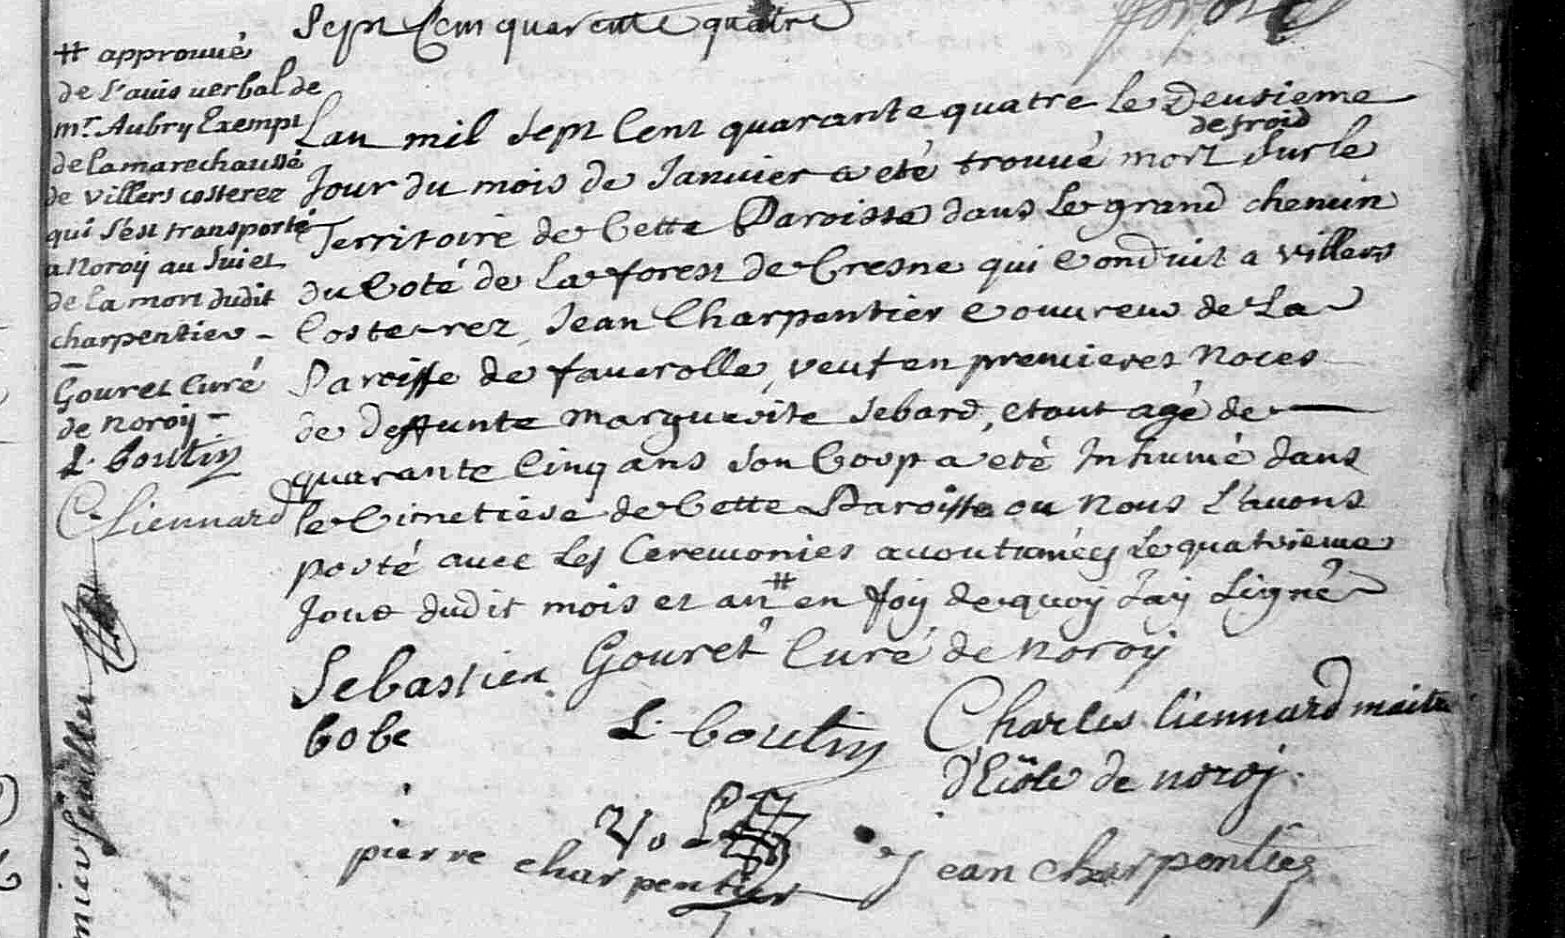 Sept Cem quarente quatre
# approuué
de L'auis uerbal de
mr. Aubry Exempt
de la marechaussé
de villers costerez
qui s'est transporté
a Noroÿ au suiet
de la mort dudit
charpentier -
Gouret Curé
de noroÿ -
L. boutin
C. Liennard
Lan mil sept Cent quarante quatre le Deusieme
Jour du mois de Januier a eté trouué mort de froid sur le
Territoire de Cette Paroisse dans Le grand chemin
du Coté de La forest de Cresne qui Conduit a villers
Coste-rez, Jean Charpentier Couureur de La
Paroisse de fauerolle, veuf en premieres Noces
de Deffunte Marguerite Sebard, etant agé de
quarante Cinq ans son Corp a eté Inhumé dans
le Cimetiere de Cette Paroisse ou Nous L'auons
porté auec Les Ceremonies acoutumées Le quatrieme
Jour dudit mois et an # en foÿ de quoÿ J'aÿ signé
Sebastien Gouret Curé de noroÿ
bobe L. boutin Charles liennard maitre
d'Ecole de noroÿ.
pierre charpentier Jean charpentier